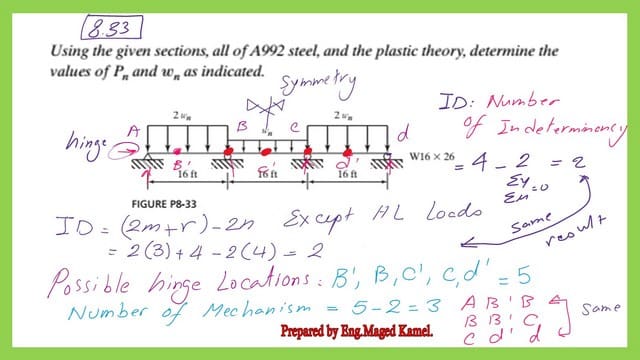 8.33
Using the given sections, all of A992 steel, and the plastic theory, determine the
values of Pn and wn as indicated.
Symmetry
ID: Number
of Indeterminency
hinge
A 2 wn B wn C 2 wn d
B' C' d'
W16 × 26
16 ft 16 ft 16 ft
= 4 - 2 = 2
Σy
Σm =0
FIGURE P8-33
ID = (2m+r) - 2n Except HL Loads
same result
= 2(3) + 4 - 2(4) = 2
Possible hinge Locations: B', B, C', C, d' = 5
Number of Mechanism = 5-2=3
A B' B
B B' C
C d' d
Same
Prepared by Eng.Maged Kamel.